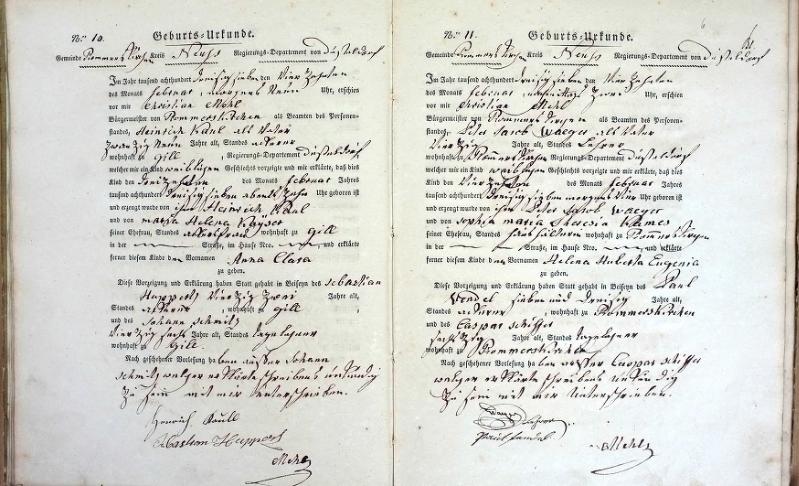 Nro 10.
Geburts-Urkunde.
Gemeinde Rommerskirchen Kreis Neuss Regierungs-Departement von Düsseldorf
Im Jahr tausend achthundert dreisig sieben den Vier Zehnten
des Monats februar morgens Neun Uhr, erschien
vor mir Christian Mehl
Bürgermeister von Rommerskirchen als Beamten des Personen-
standes, Heinrich Kaul als Vater
Zwanzig Neun Jahre alt, Standes
wohnhaft zu Gill, Regierungs-Departement Düsseldorf
welcher mir ein Kind weiblichen Geschlechts vorzeigte und mir erklärte, daß dies
Kind den dreizehnten des Monats februar Jahrs
tausend achthundert dreisig sieben abends Zehn Uhr geboren ist
und erzeugt wurde von ihm Heinrich Kaul
und von maria Helena Kayser
seiner Ehefrau, Standes wohnhaft zu Gill
in der Straße, im Hause Nro. und erklärte
ferner diesem Kinde den Vornamen Anna Clara
zu geben.
Diese Vorzeigung und Erklärung haben Statt gehabt in Beiseyn des Sebastian
Huppertz Vierzig Zwei Jahre alt,
Standes , wohnhaft zu Gill
und des Johann Schmitz
Vierzig sechs Jahre alt, Standes tagelohner
wohnhaft zu Gill.
Nach geschehener Vorlesung haben ausser Johann
Schmitz welcher erklärte schreibens unkundig
zu sein mit mir unterschrieben.
Heinrich Kaull
Huppertz
Mehl
Nro 11.
Geburts-Urkunde.
Gemeinde Rommerskirchen Kreis Neuss Regierungs-Departement von Düsseldorf
Im Jahr tausend achthundert dreisig sieben den Vier Zehnten
des Monats februar nachmittags Zwei Uhr, erschien
vor mir Christian Mehl
Bürgermeister von Rommerskirchen als Beamten des Personen-
standes, Peter Jacob Waeger als Vater
Vierzig Jahre alt, Standes Lehrer
wohnhaft zu Rommerskirchen Regierungs-Departement Düsseldorf
welcher mir ein Kind weiblichen Geschlechts vorzeigte und mir erklärte, daß dies
Kind den Vierzehnten des Monats februar Jahrs
tausend achthundert dreisig sieben morgens vier Uhr geboren ist
und erzeugt wurde von ihm Peter Jacob Waeger
und von Sophia maria Theresia
seiner Ehefrau, Standes wohnhaft zu Rommerskirchen
in der Straße, im Hause Nro. und erklärte
ferner diesem Kinde den Vornamen Helena Huberta Eugenia
zu geben.
Diese Vorzeigung und Erklärung haben Statt gehabt in Beiseyn des Paul
sieben und dreisig Jahre alt,
Standes , wohnhaft zu Rommerskirchen
und des Caspar Schiffer
sechzig Jahre alt, Standes tagelohner
wohnhaft zu Rommerskirchen
Nach geschehener Vorlesung haben ausser Caspar Schiffer
welcher erklärte schreibens unkundig
zu sein mit mir unterschrieben.
Lehrer
Mehl